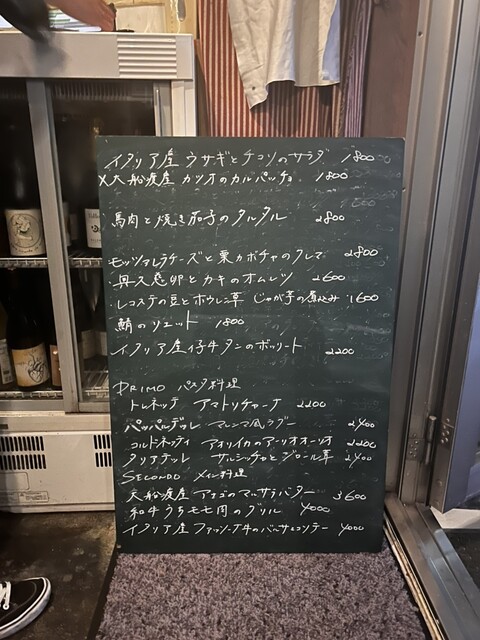 イタリア産 ウサギとチコリのサラダ 1800
×大船渡産 カツオのカルパッチョ 1800
馬肉と焼き茄子のタルタル 2800
モッツァレラチーズと栗カボチャの 2800
奥久慈卵とカキのオムレツ 2600
の豆とホウレン草 じゃが芋の煮込み 1600
鯖のリエット 1800
イタリア産仔牛タンのボッリート 2200
PRIMO パスタ料理
トレネッテ アマトリチャーナ 2200
パッパルデッレ マレンマ風ラグー 2400
コルドネッティ アオリイカのアーリオオーリオ 2200
タリアテッレ サルシッチャとジロール茸 2400
SECONDO メイン料理
大船渡産 のマルサラバター 3600
和牛うちモモ肉のグリル 4000
イタリア産 4000